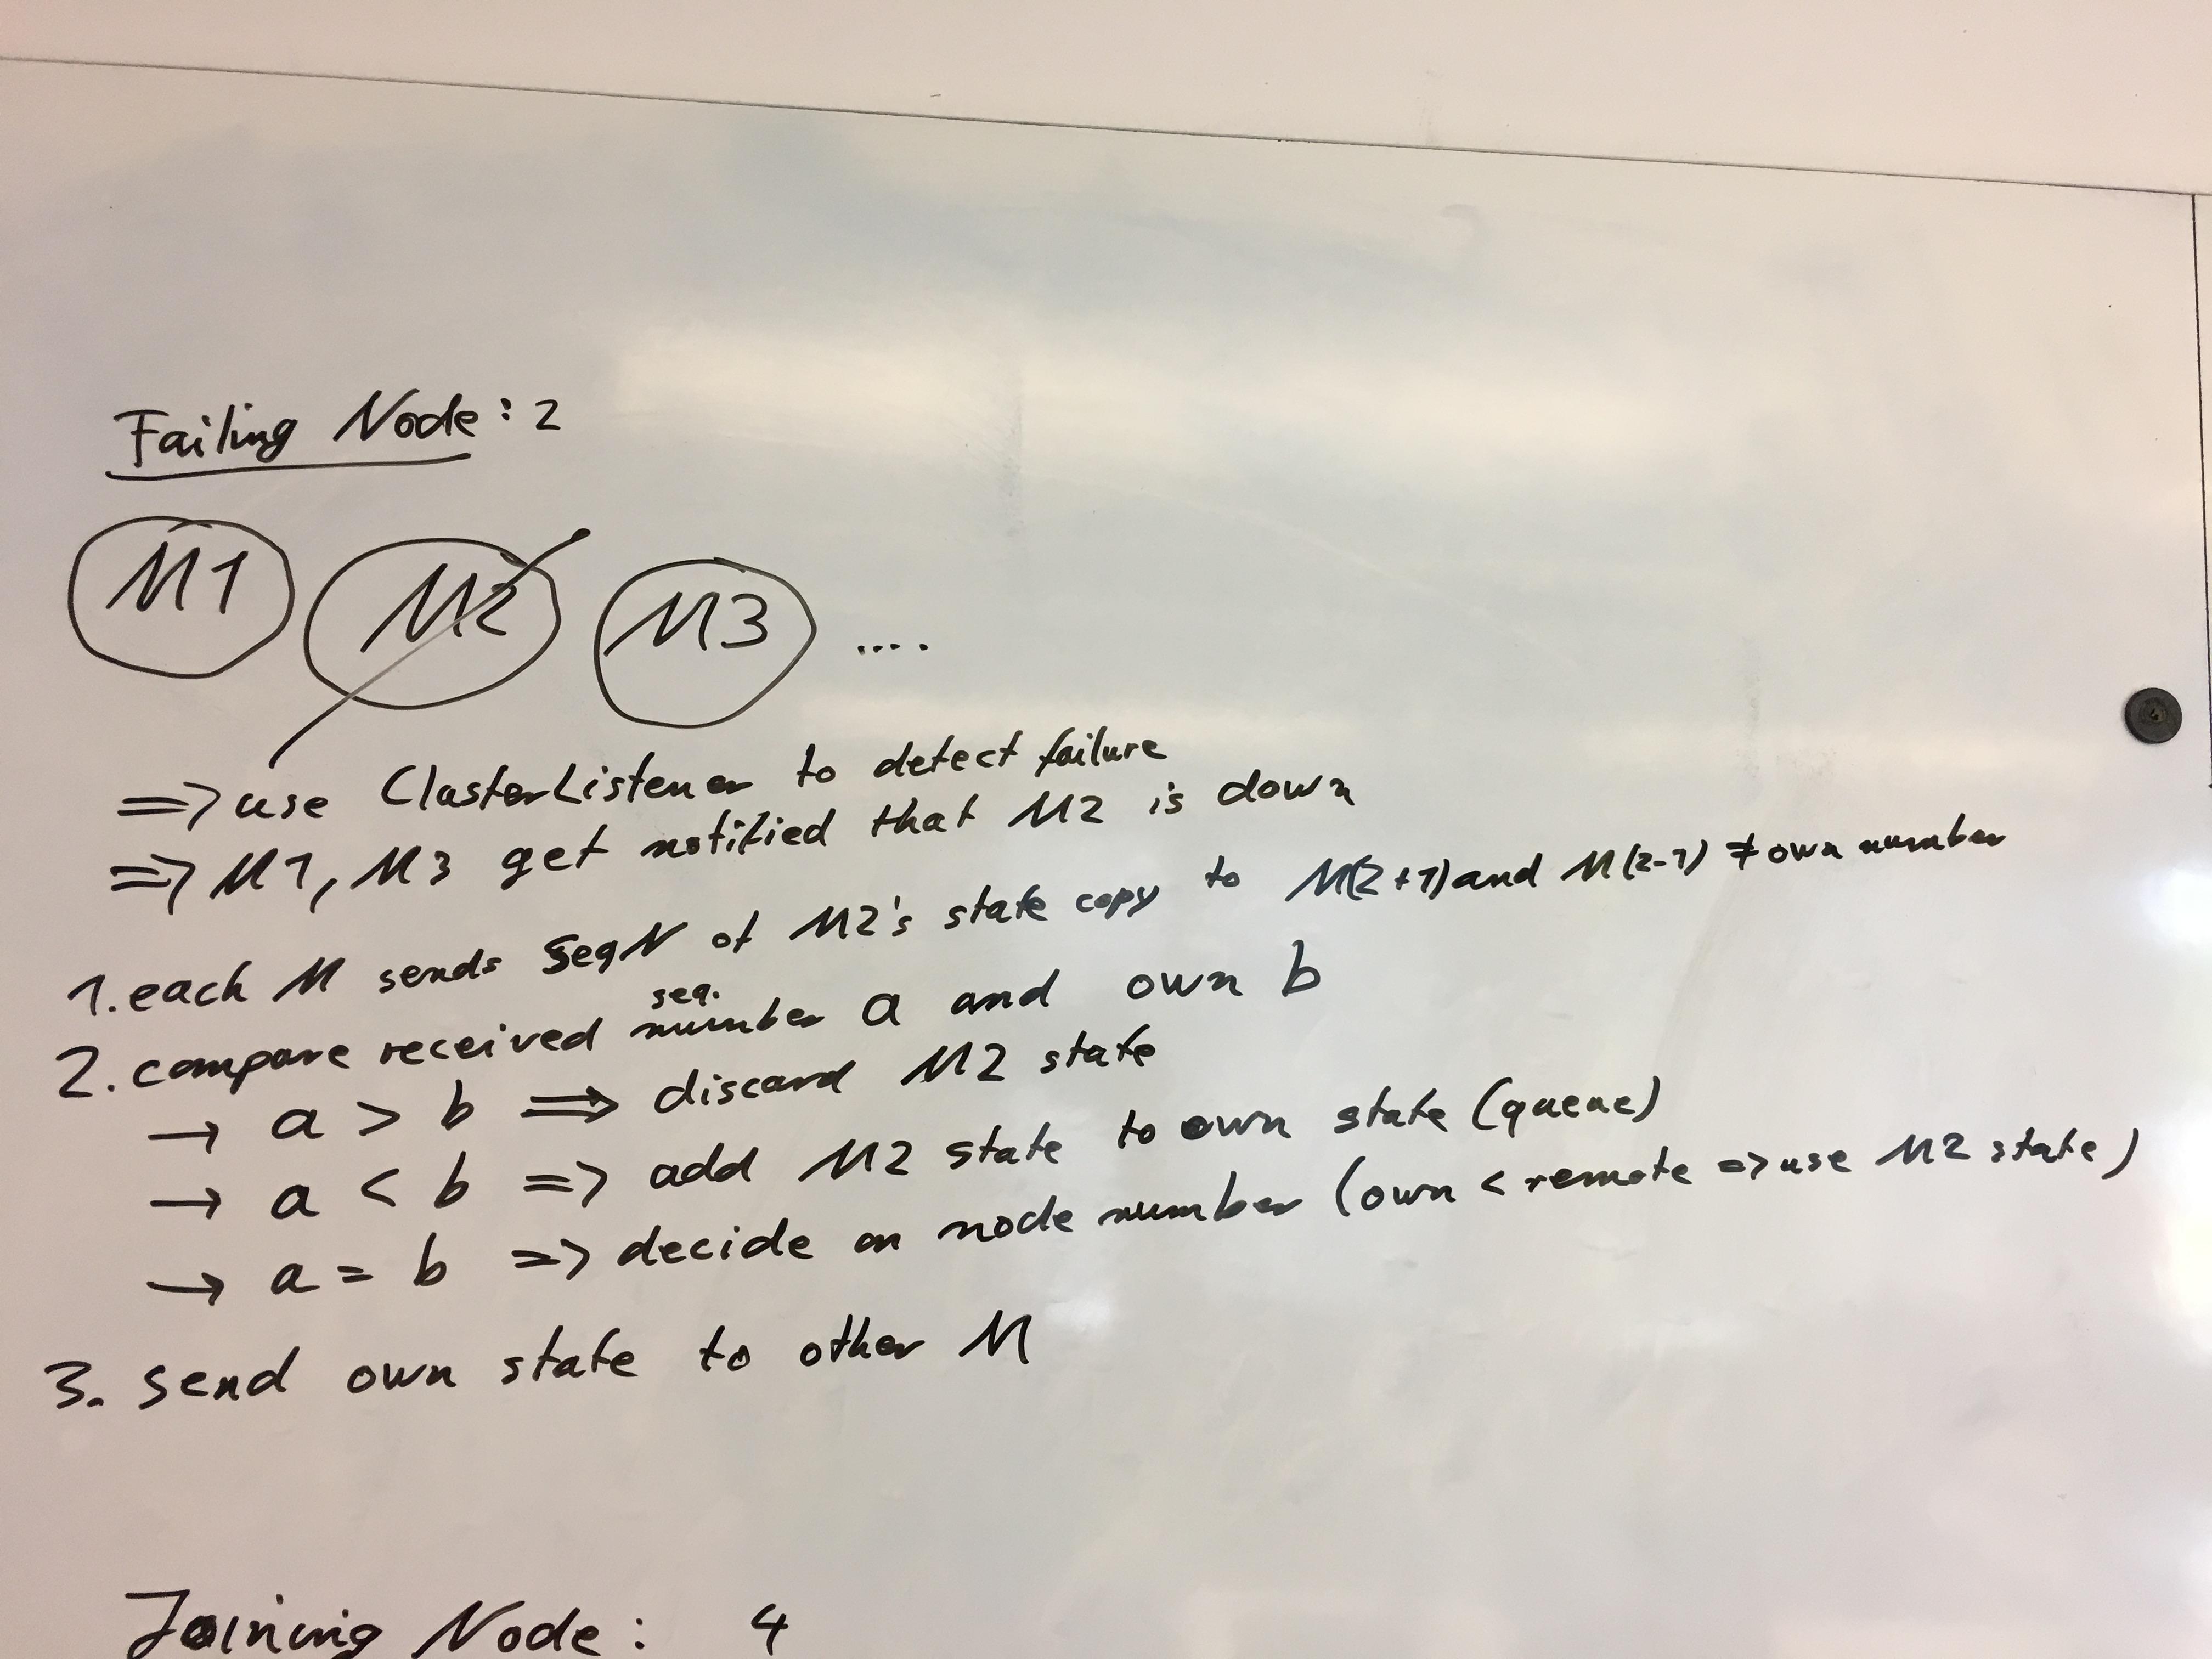 Failing Node: 2
M1 M2 M3 ....
=> use ClusterListener to detect failure
=> M1, M3 get notified that M2 is down
1. each M sends SeqN of M2's state copy to M(2+1) and M(2-1) ≠ own number
2. compare received seq. number a and own b
→ a > b => discard M2 state
→ a < b => add M2 state to own state (queue)
→ a = b => decide on node number (own < remote => use M2 state)
3. send own state to other M
Joining Node: 4